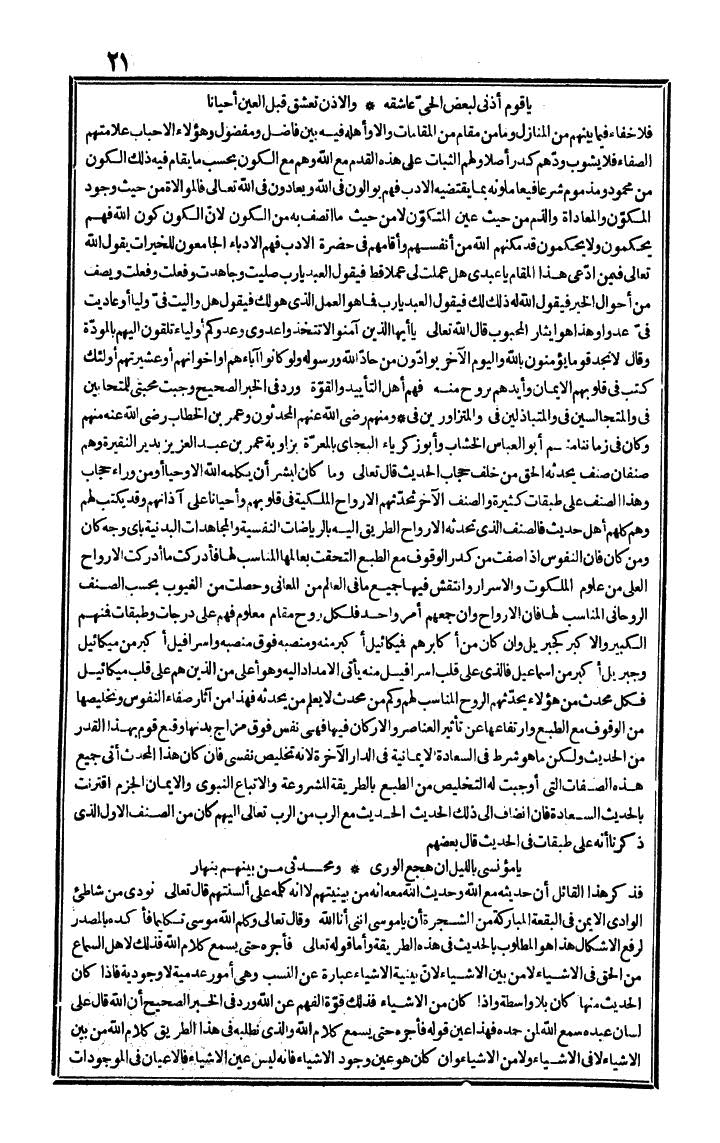 ٢١
ياقوم أذنى لبعض الحىّ عاشقه * والاذن تعشق قبل العين أحيانا
فلاخفاء فيما بينهم من المنازل ومامن مقام من المقامات والاوأهله فيه بين فاضل ومفضول وهؤلاء الاحباب علامتهم
الصفاء فلايشوب ودّهم كدر أصلا ولهم الثبات على هذه القدم مع الله وهم مع الكون بحسب مايقام فيه ذلك الكون
من محمود ومذموم شرعا فيعاملونه بما يقتضيه الادب فهم يوالون فى الله ويعادون فى الله تعالى فالموالاة من حيث وجود
المكوّن والمعاداة والذم من حيث عين المتكوّن لامن حيث مااتصف به من الكون لانّ الكون كون الله فهم
يحكمون ولايحكمون قد مكنهم الله من أنفسهم وأقامهم فى حضرة الادب فهم الادباء الجامعون للخيرات يقول الله
تعالى فيمن ادّعى هذا المقام ياعبدى هل عملت لى عملا قط فيقول العبد يارب صليت وجاهدت وفعلت وفعلت ويصف
من أحوال الخير فيقول الله له ذلك لك فيقول العبد يارب فماهو العمل الذى هو لك فيقول هل واليت فىّ وليا أو عاديت
فىّ عدوا وهذا هو ايثار المحبوب قال الله تعالى ياأيها الذين آمنوا لاتتخذوا عدوى وعدوكم أولياء تلقون اليهم بالمودّة
وقال لاتجد قوما يؤمنون بالله واليوم الآخر يوادّون من حادّ الله ورسوله ولو كانوا آباءهم او اخوانهم أو عشيرتهم أولئك
كتب فى قلوبهم الايمان وأيدهم بروح منه فهم أهل التأييد والقوّة ورد فى الخبر الصحيح وجبت محبتى للمتحابين
فى والمتجالسين فى والمتباذلين فى والمتزاورين فى * ومنهم رضى الله عنهم المحدثون وعمر بن الخطاب رضى الله عنه منهم
وكان فى زماننا منهم أبو العباس الخشاب وأبو زكرياء البجاى بالمعرّة بزاوية عمر بن عبد العزيز بدير النقيرة وهم
صنفان صنف يحدثه الحق من خلف حجاب الحديث قال تعالى وما كان لبشر أن يكلمه الله الاوحيا أو من وراء حجاب
وهذا الصنف على طبقات كثيرة والصنف الآخر تحدّثهم الارواح الملكية فى قلوبهم وأحيانا على آذانهم وقد يكتب لهم
وهم كلهم أهل حديث فالصنف الذى تحدثه الارواح الطريق اليه بالرياضات النفسية والمجاهدات البدنية باى وجه كان
ومن كان فان النفوس اذا صفت من كدر الوقوف مع الطبع التحقت بعالمها المناسب لها فأدركت ما أدركت الارواح
العلى من علوم الملكوت والاسرار وانتقش فيها جميع ما فى العالم من المعانى وحصلت من الغيوب بحسب الصنف
الروحانى المناسب لها فان الارواح وان جمعهم أمر واحد فلكل روح مقام معلوم فهم على درجات وطبقات فنهم
الكبير والاكبر كجبريل وان كان من أكابرهم فميكائيل أكبر منه ومنصبه فوق منصبه واسرافيل أكبر من ميكائيل
وجبريل أكبر من اسماعيل فالذى على قلب اسرافيل منه يأتى الامداد اليه وهو أعلى من الذين هم على قلب ميكائيل
فكل محدث من هؤلاء يحدّثهم الروح المناسب لهم وكم من محدث لايعلم من يحدثه فهذا من آثار صفاء النفوس وتخليصها
من الوقوف مع الطبع وارتفاعها عن تأثير العناصر والاركان فيها فهى نفس فوق مزاج بدنها وقنع قوم بهذا القدر
من الحديث ولكن ماهو شرط فى السعادة الايمانية فى الدار الآخرة لانه تخليص نفسى فان كان هذا المحدث أتى جميع
هذه الصفات التى أوجبت له التخليص من الطبع بالطريقة المشروعة والاتباع النبوى والايمان الجزم اقترنت
بالحديث السعادة فان انضاف الى ذلك الحديث الحديث مع الرب من الرب تعالى اليهم كان من الصنف الاول الذى
ذكرنا أنه على طبقات فى الحديث قال بعضهم
يامؤنسى بالليل ان هجع الورى * ومحدثى من بينهم بنهار
فذكر هذا القائل أن حديثه مع الله وحديث الله معه انه من بينيتهم لا انه كلمه على ألسنتهم قال تعالى نودى من شاطئ
الوادى الايمن فى البقعة المباركة من الشجرة أن ياموسى اننى أنا الله وقال تعالى وكلم الله موسى تكليما فأكده بالمصدر
لرفع الاشكال هذا هو المطلوب بالحديث فى هذه الطريقة وأما قوله تعالى فأجره حتى يسمع كلام الله فذلك لاهل السماع
من الحق فى الاشياء لا من بين الاشياء لانّ بينية الاشياء عبارة عن النسب وهى أمور عدمية لا وجودية فاذا كان
الحديث منها كان بلا واسطة واذا كان من الاشياء فذلك قوّة الفهم عن الله ورد فى الخبر الصحيح أن الله قال على
لسان عبده سمع الله لمن حمده فهذا عين قوله فأجره حتى يسمع كلام الله والذى نطلبه فى هذا الطريق كلام الله من بين
الاشياء لا فى الاشياء ولا من الاشياء وان كان هو عين وجود الاشياء فانه ليس عين الاشياء فالاعيان فى الموجودات